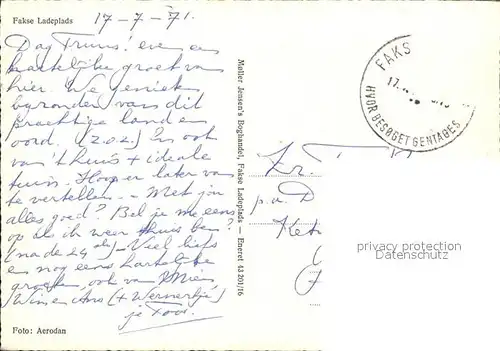 Fakse Ladeplads
17-7-'71.
Dag Truus! even een
hartelijke groet van
hier. We genieten
byzonder van dit
prachtige land en
oord. (z.o.z.) En ook
van 't huis + ideale
tuin. Hoop er later van
te vertellen – Met jou
alles goed? Bel je me eens
op als ik weer thuis ben?
(na de 24 ste) – Veel liefs
en nog eens hartelijke
groeten, ook van Mien,
Wim en Ans (+ Wernertje)
je Toos.
Foto: Aerodan
Møller Jensen's Boghandel, Fakse Ladeplads — Eneret 43 201/16
FAKS
17.
HVOR BESØGET GENTAGES
Zr. T
p.a. D
Ket
privacy protection
Datenschutz